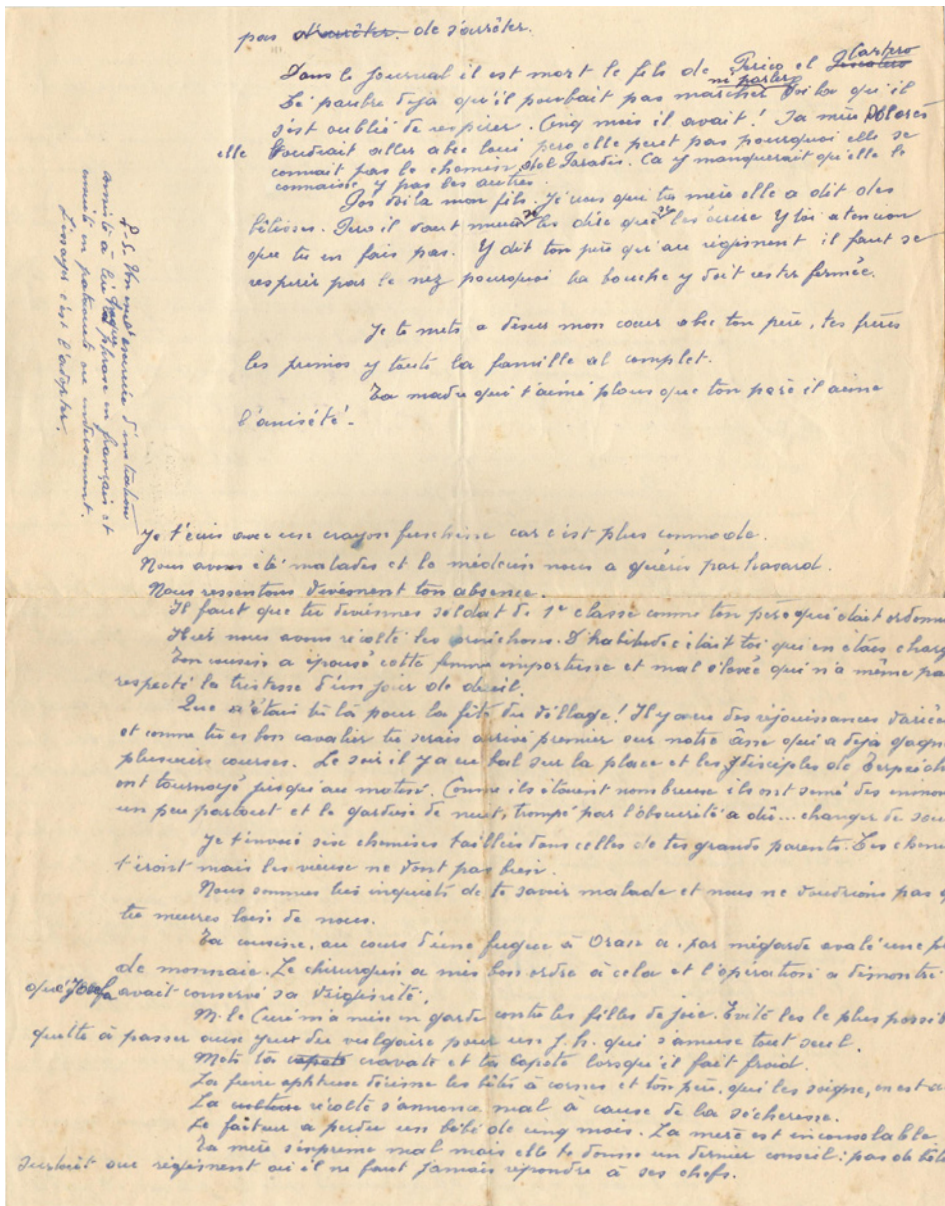 pas d'arrêter de s'arrêter.
Dans le journal il est mort le fils de Perico el Cartero
ni partero
Lé paubre deja qu'il poubait pas marcher boila qu'il
s'est oublié de respirer. Cinq mois il avait! Sa mère Dolorès
elle boudrait aller abec loui pero elle peut pas pourquoi elle se
connait pas le chemin del Paradis. Ca y manquerait qu'elle le
connaisse y pas les autres.
Pos boila mon fils. Je veus que ta mère elle a dit des
bêtises. Pero il baut mieus les dire que les  Y toi atencion
que tu en fais pas. Y dit ton père qu'au régiment il faut se
respirer par le nez pourquoi la bouche y doit rester fermée.
Je te mets a desus mon cœur abec ton père, tes frères
les primos y toute la famille al complet.
Ta madre qui t'aime plous que ton père il aime
l'anisété.
P.S. Un  exercice d'imitation
consiste à lire chaque phrase en français et
ensuite en pataouète ou inversement.
L'essayer c'est l'adopter.
Je t'écris avec un crayon fuschine car c'est plus commode.
Nous avons été malades et le médecin nous a guéris par hasard.
Nous ressentons vivement ton absence.
Il faut que tu deviennes soldat de 1e classe comme ton père qui était ordonn
Hier nous avons récolté les artichauts. D'habitude c'était toi qui en étais charg
Ton cousin a épousé cette femme importune et mal élevée qui n'a même pa
respecté la tristesse d'un jour de deuil.
Que n'étais tu là pour la fête du village! Il y a eu des réjouissances variée
et comme tu es bon cavalier tu serais arrivé premier sur notre âne qui a deja gagn
plusieurs courses. Le soir il y a eu bal sur la place et les disciples de Terpsich
ont tournoyé jusqu'au matin. Comme ils étaient nombreux ils ont semé des
un peu partout et le gardien de nuit, trompé par l'obscurité a dû... changer de sou
Je t'envoie six chemises taillées dans celles de tes grands parents. Les
t'iront mais les vieux ne vont pas bien.
Nous sommes très inquiets de te savoir malade et nous ne voudrions pas q
tu meures loin de nous.
Ta cousine, au cours d'une fugue à Oran a par mégarde avalé une p
de monnaie. Le chirurgien a mis bon ordre à cela et l'opération a démontré
que Josefa avait conservé sa virginité.
M. le Curé m'a mise en garde contre les filles de joie. Evite les le plus possib
quitte à passer aux yeux du vulgaire pour un j.h. qui s'amuse tout seul.
Mets ta capote cravate et ta capote lorsqu'il fait froid.
La fièvre aphteuse décime les bêtes à cornes et ton père, qui les soigne, en est a
La culture récolte s'annonce mal à cause de la sécheresse.
Le facteur a perdu un bébé de cinq mois. La mère est inconsolable
Ta mère s'exprime mal mais elle te donne un dernier conseil: pas de bêt
surtout au régiment où il ne faut jamais répondre à ses chefs.